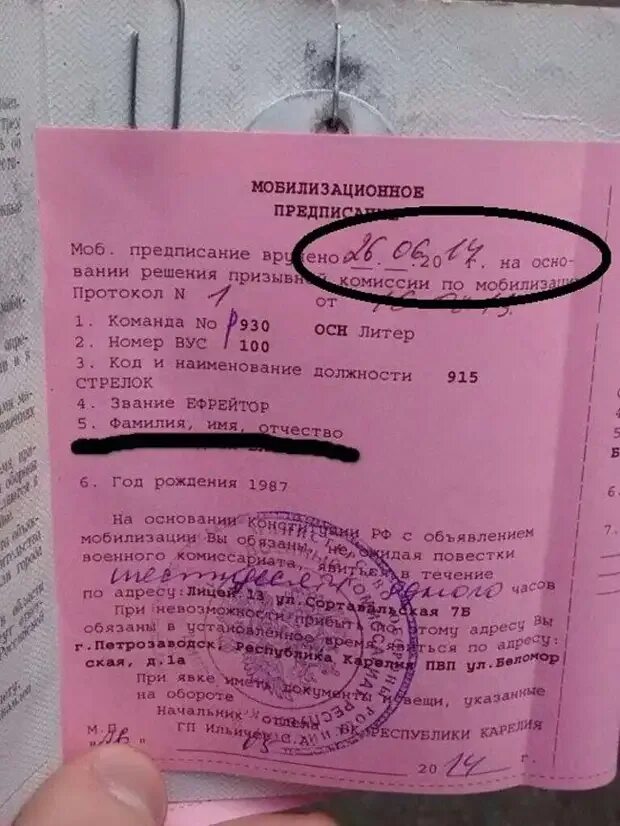 МОБИЛИЗАЦИОННОЕ
ПРЕДПИСАНИЕ
Моб. предписание вручено 26.06.2014 г. на осно-
вании решения призывной комиссии по мобилизаци
Протокол N 1 от
1. Команда No р930 ОСН Литер
2. Номер ВУС 100
3. Код и наименование должности 915
СТРЕЛОК
4. Звание ЕФРЕЙТОР
5. Фамилия, имя, отчество
6. Год рождения 1987
На основании Конституции РФ с объявлением
мобилизации Вы обязаны, не ожидая повестки
военного комиссариата, явиться в течение
одного часов
по адресу: Лицей 13 ул.Сортавальская 7Б
При невозможности прибыть по этому адресу Вы
обязаны в установленное время явиться по адресу:
г.Петрозаводск, Республика Карелия ПВП ул.Беломор
ская, д.1а
При явке иметь документы и вещи, указанные
на обороте
Начальник отдела ВК РЕСПУБЛИКИ КАРЕЛИЯ
ГП Ильичев С.А
М.П.
"26" 2014 г.